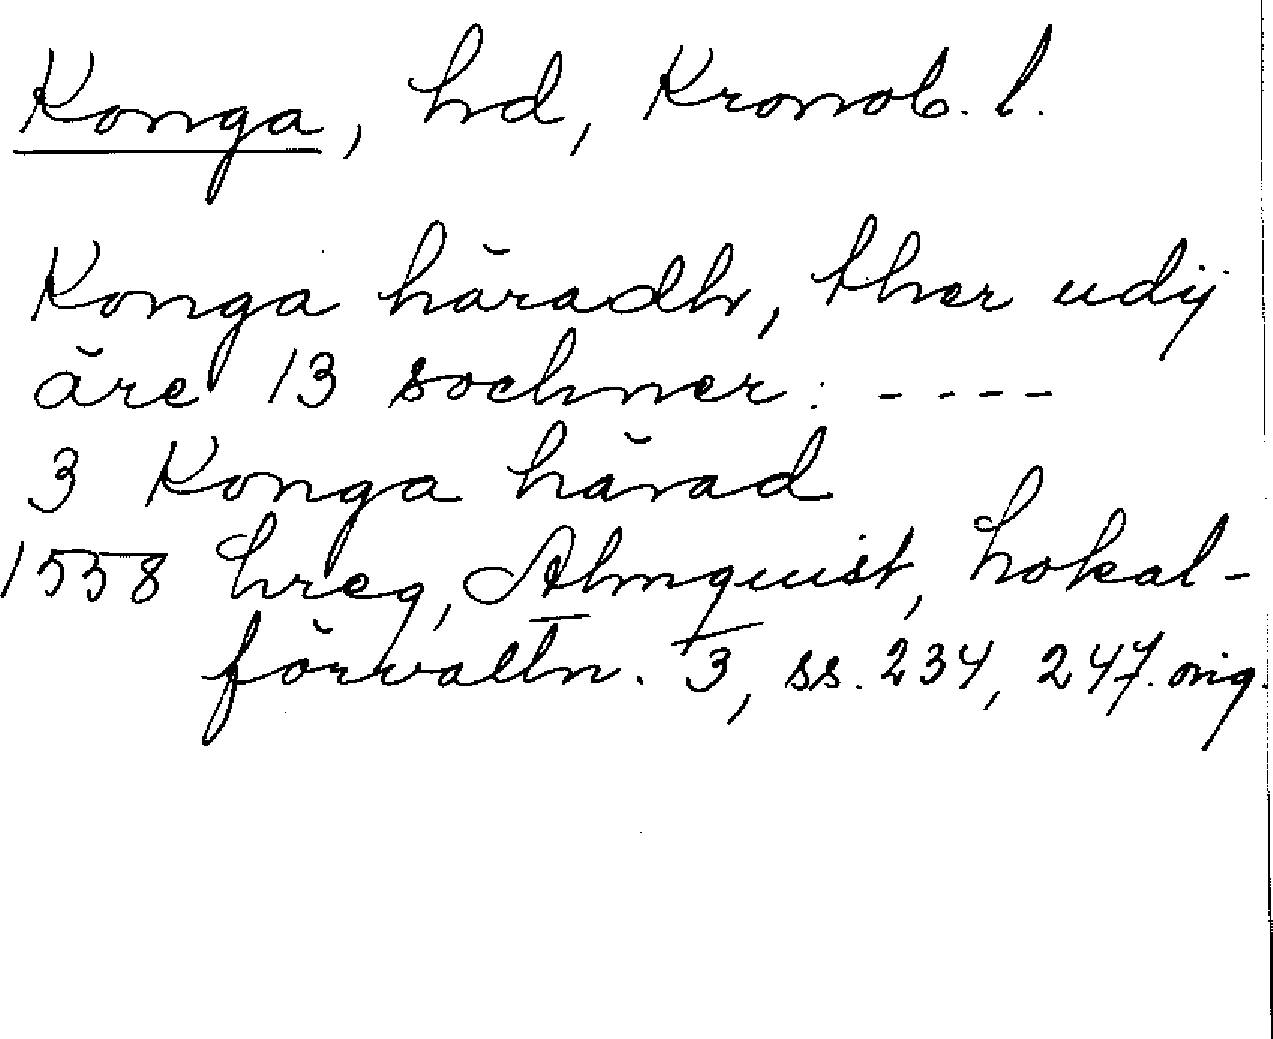 Konga, hd, Kronob. l.
Konga häradh, ther udij
äre 13 sochner: ----
3 Konga härad
1558 hreg, Almquist, Lokal-
förvaltn. 3, ss. 234, 247. orig.